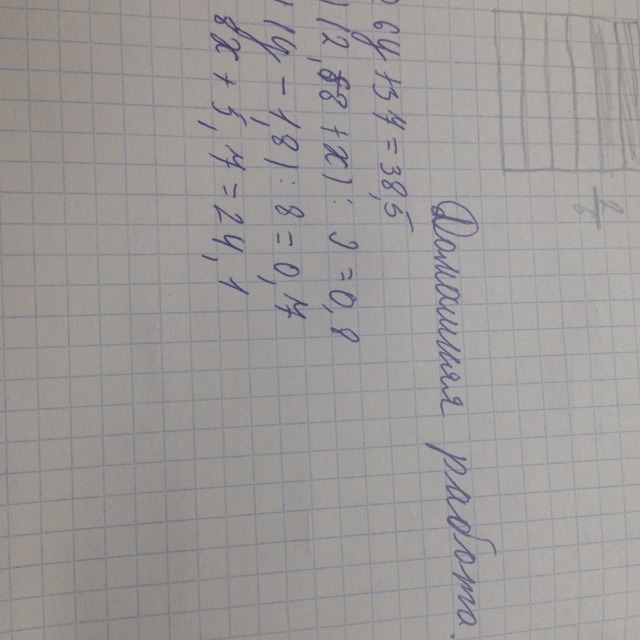 Домашняя работа
6y + 3,7 = 38,5
(2,88 + x) : 9 = 0,8
y - 1,8) : 8 = 0,7
8x + 5,7 = 24,1